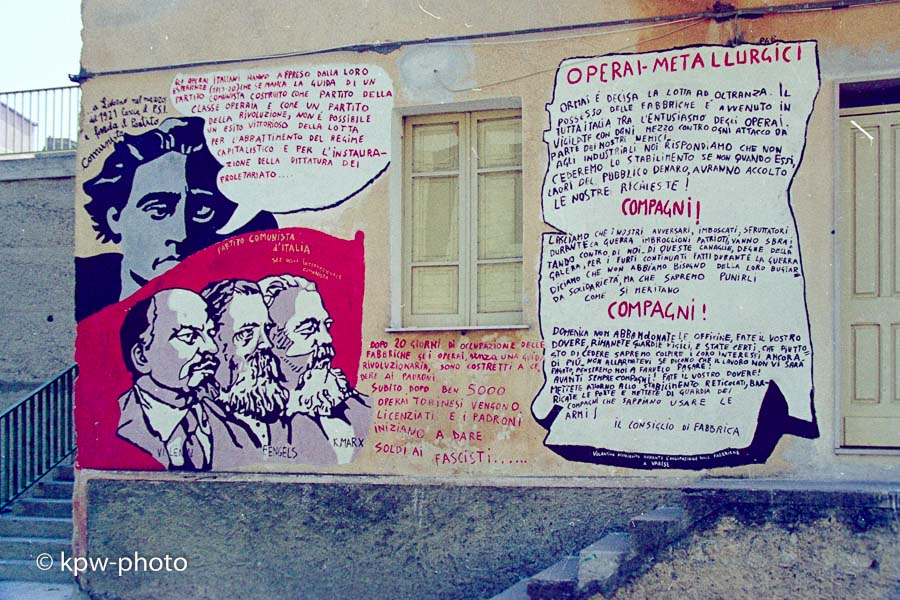 a Livorno nel marzo
del 1921 lascia il P.S.I.
e fonda il Partito
Comunista
GLI OPERAI ITALIANI HANNO APPRESO DALLA LORO
ESPERIENZA (1919-20) CHE SE MANCA LA GUIDA DI UN
PARTITO COMUNISTA COSTRUITO COME PARTITO DELLA
CLASSE OPERAIA E COME UN PARTITO
DELLA RIVOLUZIONE, NON È POSSIBILE
UN ESITO VITTORIOSO DELLA LOTTA
PER L'ABBATTIMENTO DEL REGIME
CAPITALISTICO E PER L'INSTAURA-
ZIONE DELLA DITTATURA DEL
PROLETARIATO....
PARTITO COMUNISTA
d'ITALIA
SEZ. DELLA INTERNAZIONALE
COMUNISTA
V. LENIN
F. ENGELS
K. MARX
DOPO 20 GIORNI DI OCCUPAZIONE DELLE
FABBRICHE GLI OPERAI, SENZA UNA GUIDA
RIVOLUZIONARIA, SONO COSTRETTI A CE
DERE AI PADRONI.
SUBITO DOPO BEN 5000
OPERAI TORINESI VENGONO
LICENZIATI E I PADRONI
INIZIANO A DARE
SOLDI AI FASCISTI......
OPERAI-METALLURGICI
ORMAI È DECISA LA LOTTA AD OLTRANZA. IL
POSSESSO DELLE FABBRICHE È AVVENUTO IN
TUTTA ITALIA TRA L'ENTUSIASMO DEGLI OPERAI.
VIGILATE CON OGNI MEZZO CONTRO OGNI ATTACCO DA
PARTE DEI NOSTRI NEMICI.
AGLI INDUSTRIALI NOI RISPONDIAMO CHE NON
CEDEREMO LO STABILIMENTO SE NON QUANDO ESSI,
LADRI DEL PUBBLICO DENARO, AVRANNO ACCOLTO
LE NOSTRE RICHIESTE!
COMPAGNI!
LASCIAMO CHE I NOSTRI AVVERSARI, IMBOSCATI, SFRUTTATORI
DURANTE LA GUERRA IMBROGLIONI PATRIOTI, VANNO SBRAI
TANDO CONTRO DI NOI, DI QUESTE CANAGLIE, DEGNE DELLA
GALERA, PER I FURTI CONTINUATI FATTI DURANTE LA GUERRA
DICIAMO CHE NON ABBIAMO BISOGNO DELLA LORO BUGIAR
DA SOLIDARIETÀ, MA CHE SAPREMO PUNIRLI
COME SI MERITANO
COMPAGNI!
DOMENICA NON ABBANDONATE LE OFFICINE, FATE IL VOSTRO
DOVERE, RIMANETE GUARDIE VIGILI, E STATE CERTI, CHE PIUTTO
STO DI CEDERE SAPREMO COLPIRE I LORO INTERESSI ANCORA
DI PIÙ. NON ALLARMATEVI SE DICONO CHE IL LAVORO NON VI SARÀ
PAGATO, PENSEREMO NOI A FARVELO PAGARE!
AVANTI SEMPRE COMPAGNI! FATE IL VOSTRO DOVERE!
METTETE ATTORNO ALLO STABILIMENTO RETICOLATI, BAR-
RICATE LE PORTE E METTETE DI GUARDIA DEI
COMPAGNI CHE SAPPIANO USARE LE
ARMI!
IL CONSIGLIO DI FABBRICA
VOLANTINO DISTRIBUITO DURANTE L'OCCUPAZIONE DELLE FABBRICHE
A VARESE
© kpw-photo